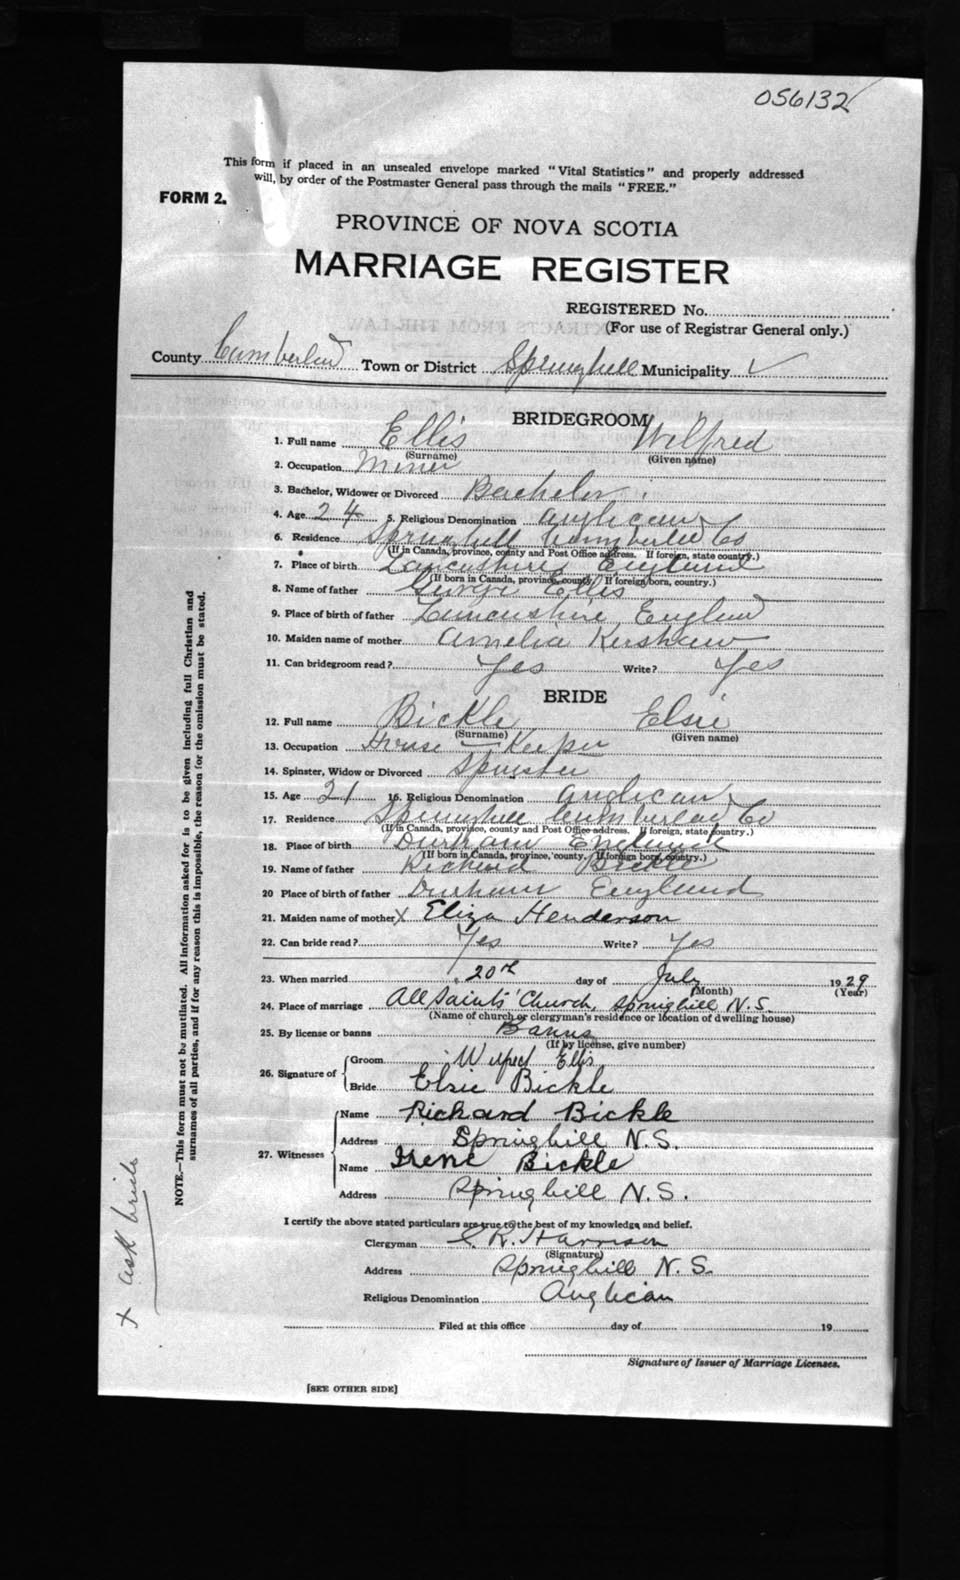 056132
This form if placed in an unsealed envelope marked "Vital Statistics" and properly addressed
will, by order of the Postmaster General pass through the mails "FREE."
FORM 2.
PROVINCE OF NOVA SCOTIA
MARRIAGE REGISTER
REGISTERED No.
(For use of Registrar General only.)
County Cumberland Town or District Springhill Municipality ✓
BRIDEGROOM
1. Full name Ellis Wilfred
(Surname) (Given name)
2. Occupation Miner
3. Bachelor, Widower or Divorced Bachelor
4. Age 24 5. Religious Denomination Anglican
6. Residence Springhill Cumberland Co
(If in Canada, province, county and Post Office address. If foreign, state country.)
7. Place of birth Lancashire England
(If born in Canada, province, county. If foreign born, country.)
8. Name of father George Ellis
9. Place of birth of father Lancashire England
10. Maiden name of mother Amelia Kershaw
11. Can bridegroom read? Yes Write? Yes
BRIDE
12. Full name Bickle Elsie
(Surname) (Given name)
13. Occupation House-Keeper
14. Spinster, Widow or Divorced Spinster
15. Age 21 16. Religious Denomination Anglican
17. Residence Springhill Cumberland Co
(If in Canada, province, county and Post Office address. If foreign, state country.)
18. Place of birth Durham England
(If born in Canada, province, county. If foreign born, country.)
19. Name of father Richard Bickle
20 Place of birth of father Durham England
21. Maiden name of mother X Eliza Henderson
22. Can bride read? Yes Write? Yes
23. When married 20th day of July 1929
(Month) (Year)
24. Place of marriage All Saints' Church, Springhill N.S.
(Name of church or clergyman's residence or location of dwelling house)
25. By license or banns Banns
(If by license, give number)
26. Signature of Groom Wilfred Ellis
Bride Elsie Bickle
27. Witnesses Name Richard Bickle
Address Springhill N.S.
Name Irene Bickle
Address Springhill N.S.
I certify the above stated particulars are true to the best of my knowledge and belief.
Clergyman Harrison
(Signature)
Address Springhill N.S.
Religious Denomination Anglican
Filed at this office day of 19
Signature of Issuer of Marriage Licenses.
[SEE OTHER SIDE]
NOTE.—This form must not be mutilated. All information asked for is to be given including full Christian and
surnames of all parties, and if for any reason this is impossible, the reason for the omission must be stated.
X ask bride